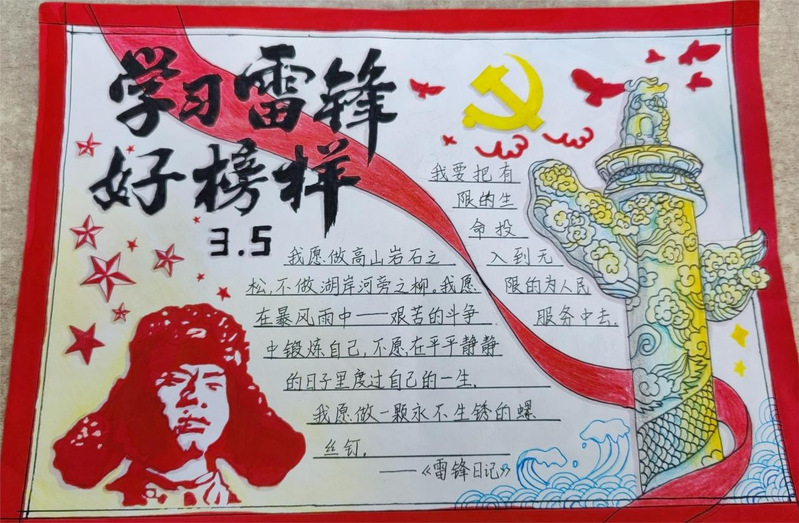 学习雷锋
好榜样
3.5
我要把有
限的生
命投
入到无
限的为人民
服务中去.
我愿做高山岩石之
松,不做湖岸河旁之柳.我愿
在暴风雨中——艰苦的斗争
中锻炼自己,不愿在平平静静
的日子里度过自己的一生.
我愿做一颗永不生锈的螺
丝钉.
——《雷锋日记》